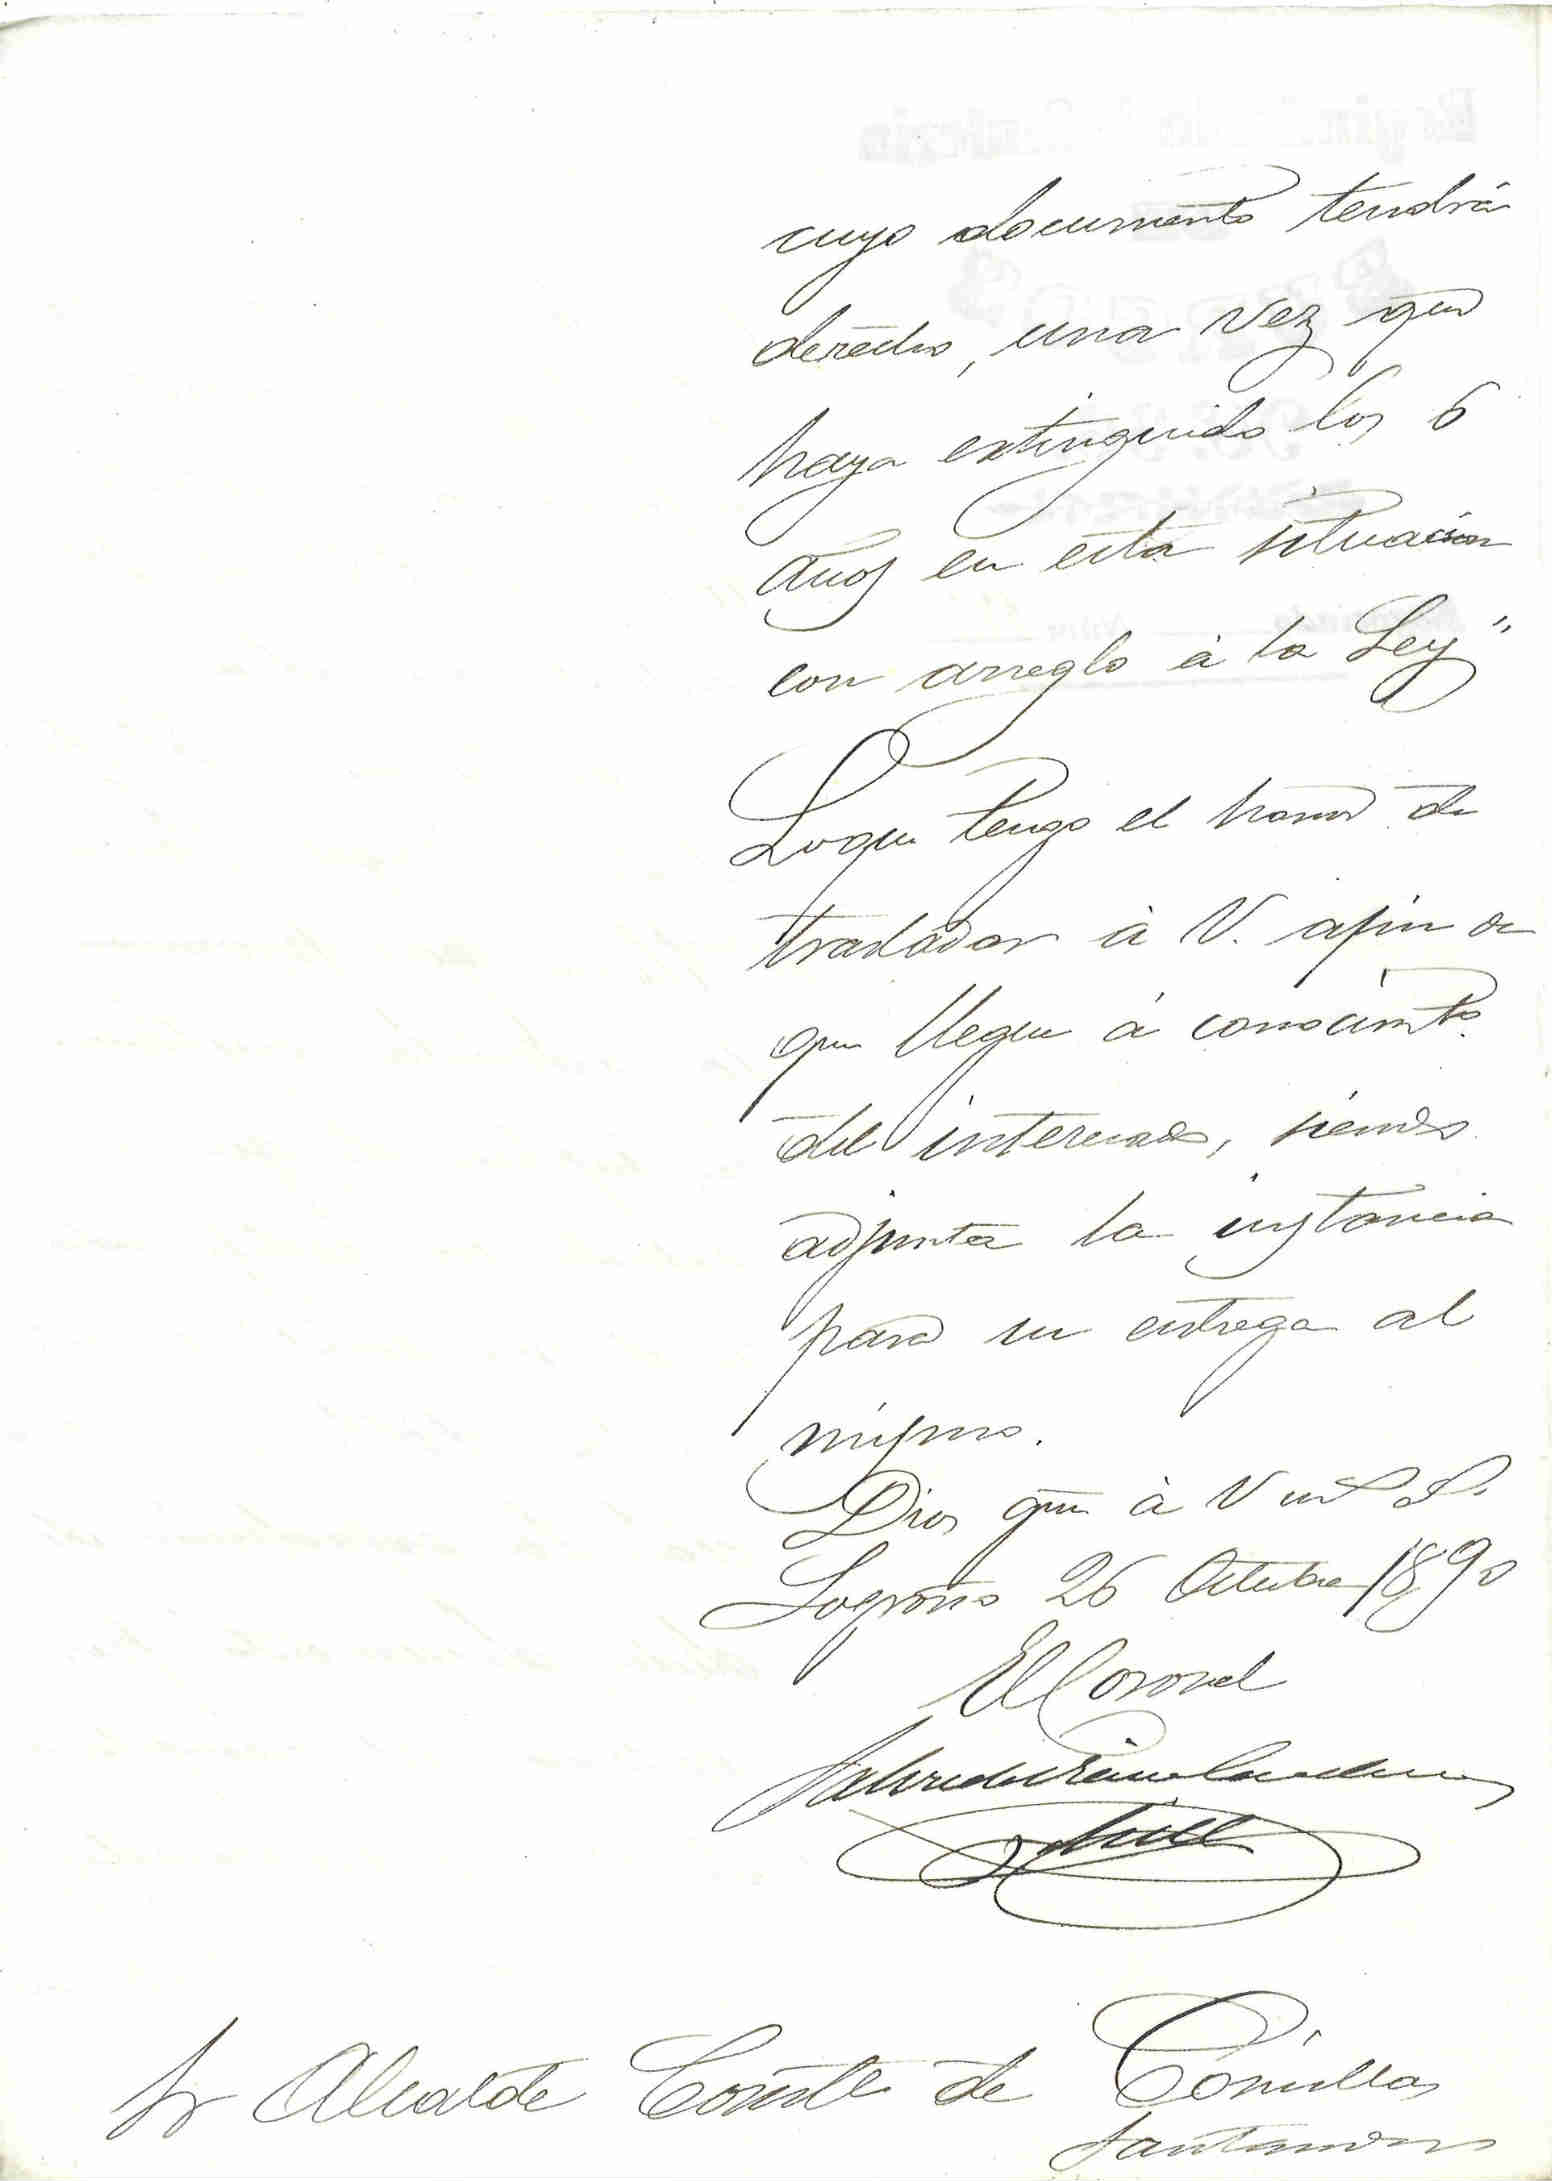 cuyo documento tendrá
derecho, una vez que
haya extinguido los 6
años en esta situacion
con arreglo á la Ley"
Loque tengo el honor de
trasladar á V. afin de
que llegue á conocimto.
del interesado, siendo
adjunta la instancia
para su entrega al
mismo.
Dios gue á V ms as.
Logroño 26 Octubre 1890
El Coronel
Sr Alcalde Constl. de Comillas
Santander